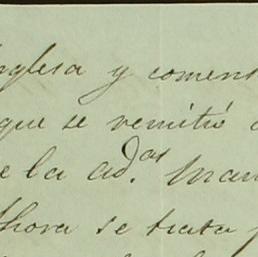 nglesa y comens
que se remitió
e la ad.as Man
hora se trata